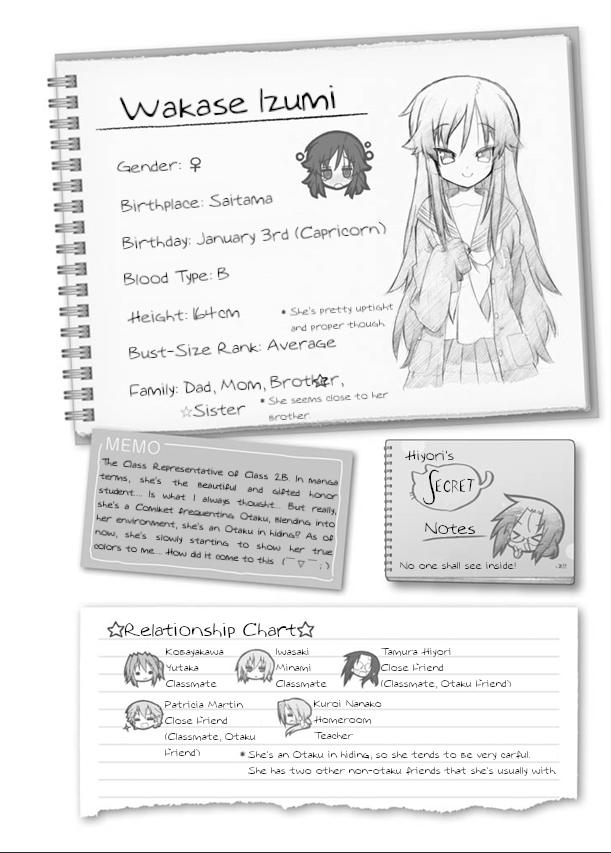 Wakase Izumi
Gender: ♀
Birthplace: Saitama
Birthday: January 3rd (Capricorn)
Blood Type: B
Height: 164cm
* She's pretty uptight
and proper though.
Bust-Size Rank: Average
Family: Dad, Mom, Brother,
☆Sister
* She seems close to her
brother.
MEMO
The Class Representative of Class 2B. In manga
terms, she's the beautiful and gifted honor
student.... Is what I always thought... But really,
she's a Comiket frequenting Otaku, blending into
her environment, she's an Otaku in hiding!? As of
now, she's slowly starting to show her true
colors to me.... How did it come to this (￣▽￣;)
Hiyori's
SECRET
Notes
No one shall see inside!
☆Relationship Chart☆
Kobayakawa
Yutaka
Classmate
Iwasaki
Minami
Classmate
Tamura Hiyori
Close Friend
(Classmate, Otaku Friend)
Patricia Martin
Close Friend
(Classmate, Otaku
Friend)
Kuroi Nanako
Homeroom
Teacher
* She's an Otaku in hiding, so she tends to be very carful.
She has two other non-otaku friends that she's usually with.